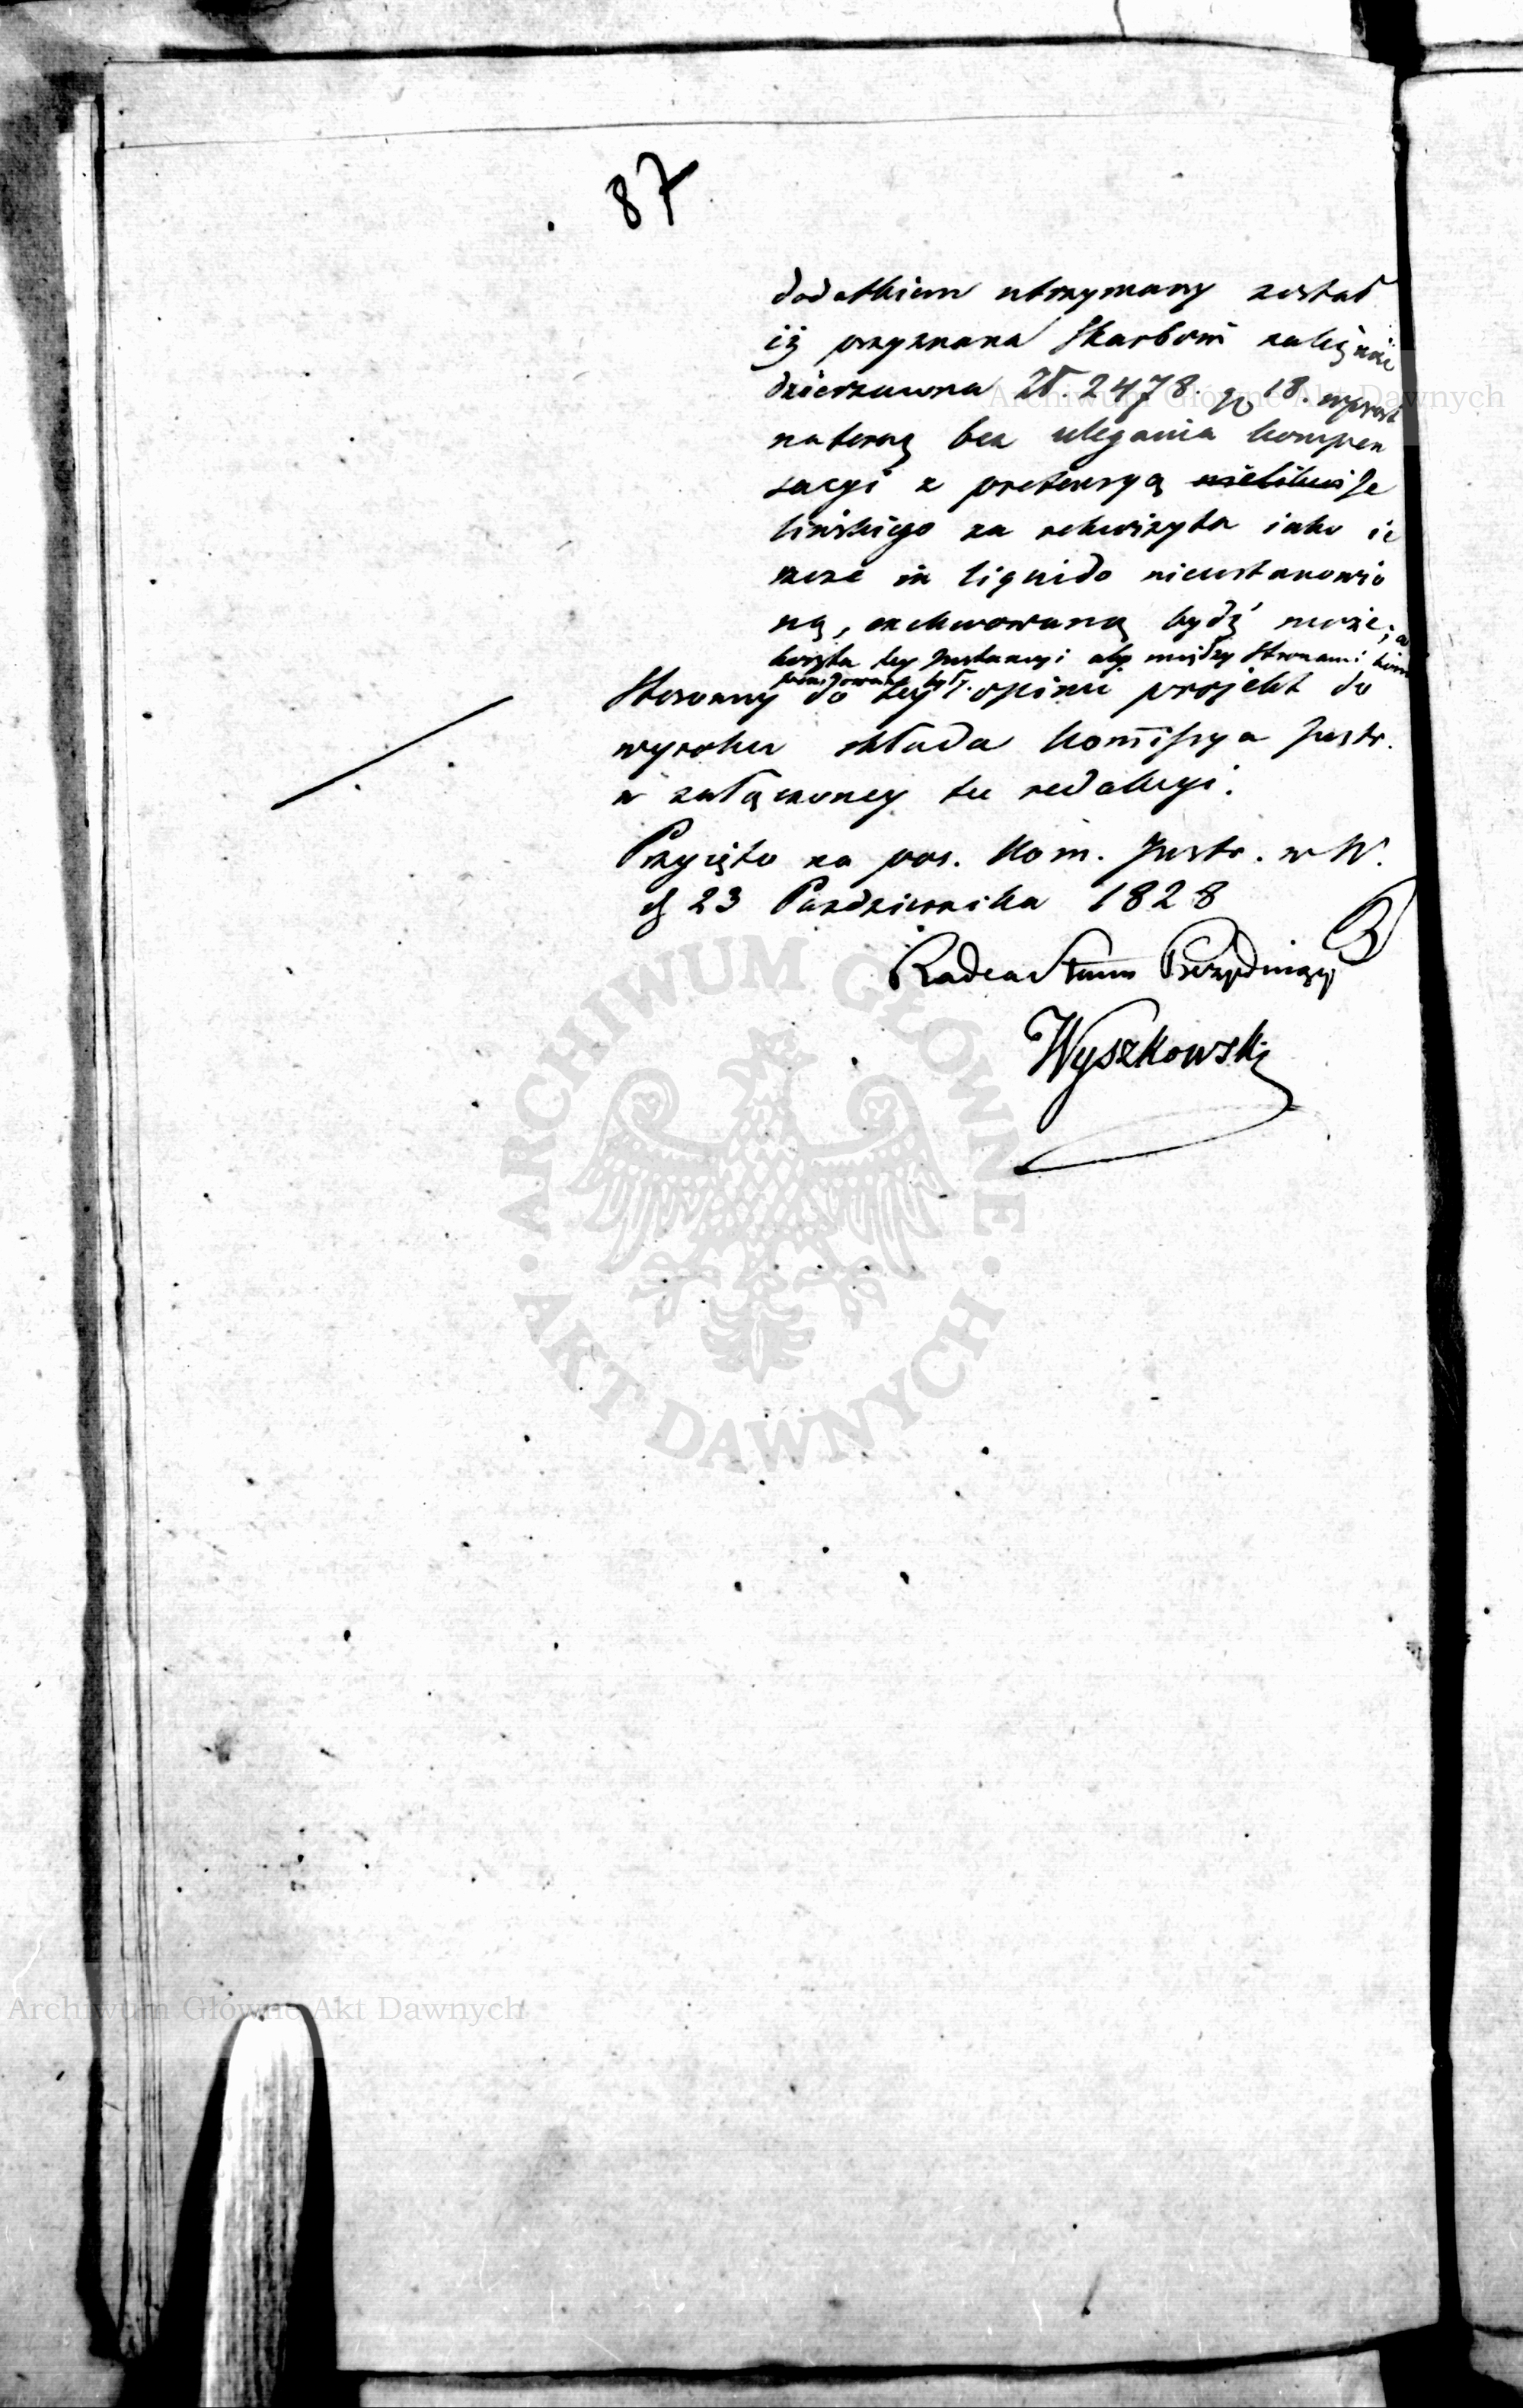 87
dodatkiem utrzymany został
iż przyznana Skarbowi należność
dzierżawna Zł. 2478. gr 18. wprost
natoraz bez ulegania kompen
sacyi z pretensyą Je
lińskiego za rekwizyta iako ie
szcze in liquido nieustanowio
ną, exekwowaną bydź może; a
koszta tey Instancyi aby między Stronami kom
pensowane były.
Stosowny do tey opinii projekt do
wyroku składa Kommissya Instr.
w załączoney tu redakcyi.
Przyięto na pos. Kom. Instr. w W.
d 23 Pazdziernika 1828
Radca Stanu Prezyduiący
Wyszkowski
ARCHIWUM GŁÓWNE
AKT DAWNYCH
Archiwum Główne Akt Dawnych
Archiwum Główne Akt Dawnych